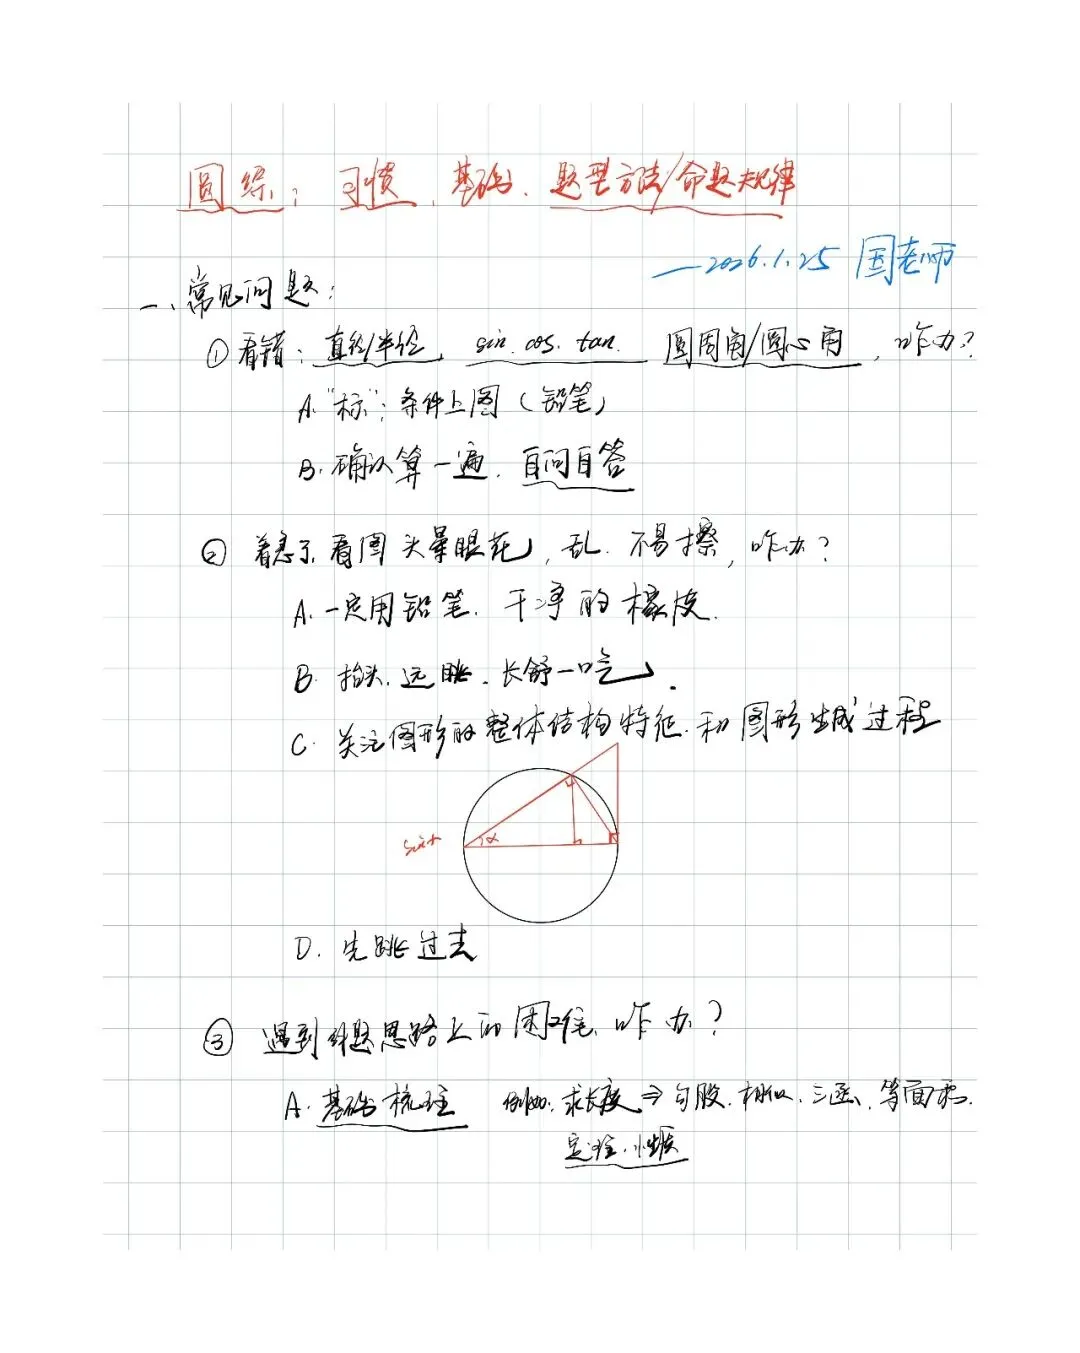 圆综：习惯、基础、题型方法/命题规律
—2026.1.25 国老师
一、常见问题：
①看错：直径/半径、sin.cos.tan. 圆周角/圆心角，咋办？
A."标"：条件上图（铅笔）
B.确认算一遍．自问自答
② 着急了.看图头晕眼花，乱．不易擦，咋办？
A.一定用铅笔．干净的橡皮．
B.抬头．远眺．长舒一口气．
C.关注图形的整体结构特征．和图形生成过程
α
D．先跳过去
③ 遇到解题思路上的困难．咋办？
A.基础梳理 例如：求长度⇒勾股．相似．三函．等面积．
定理．性质